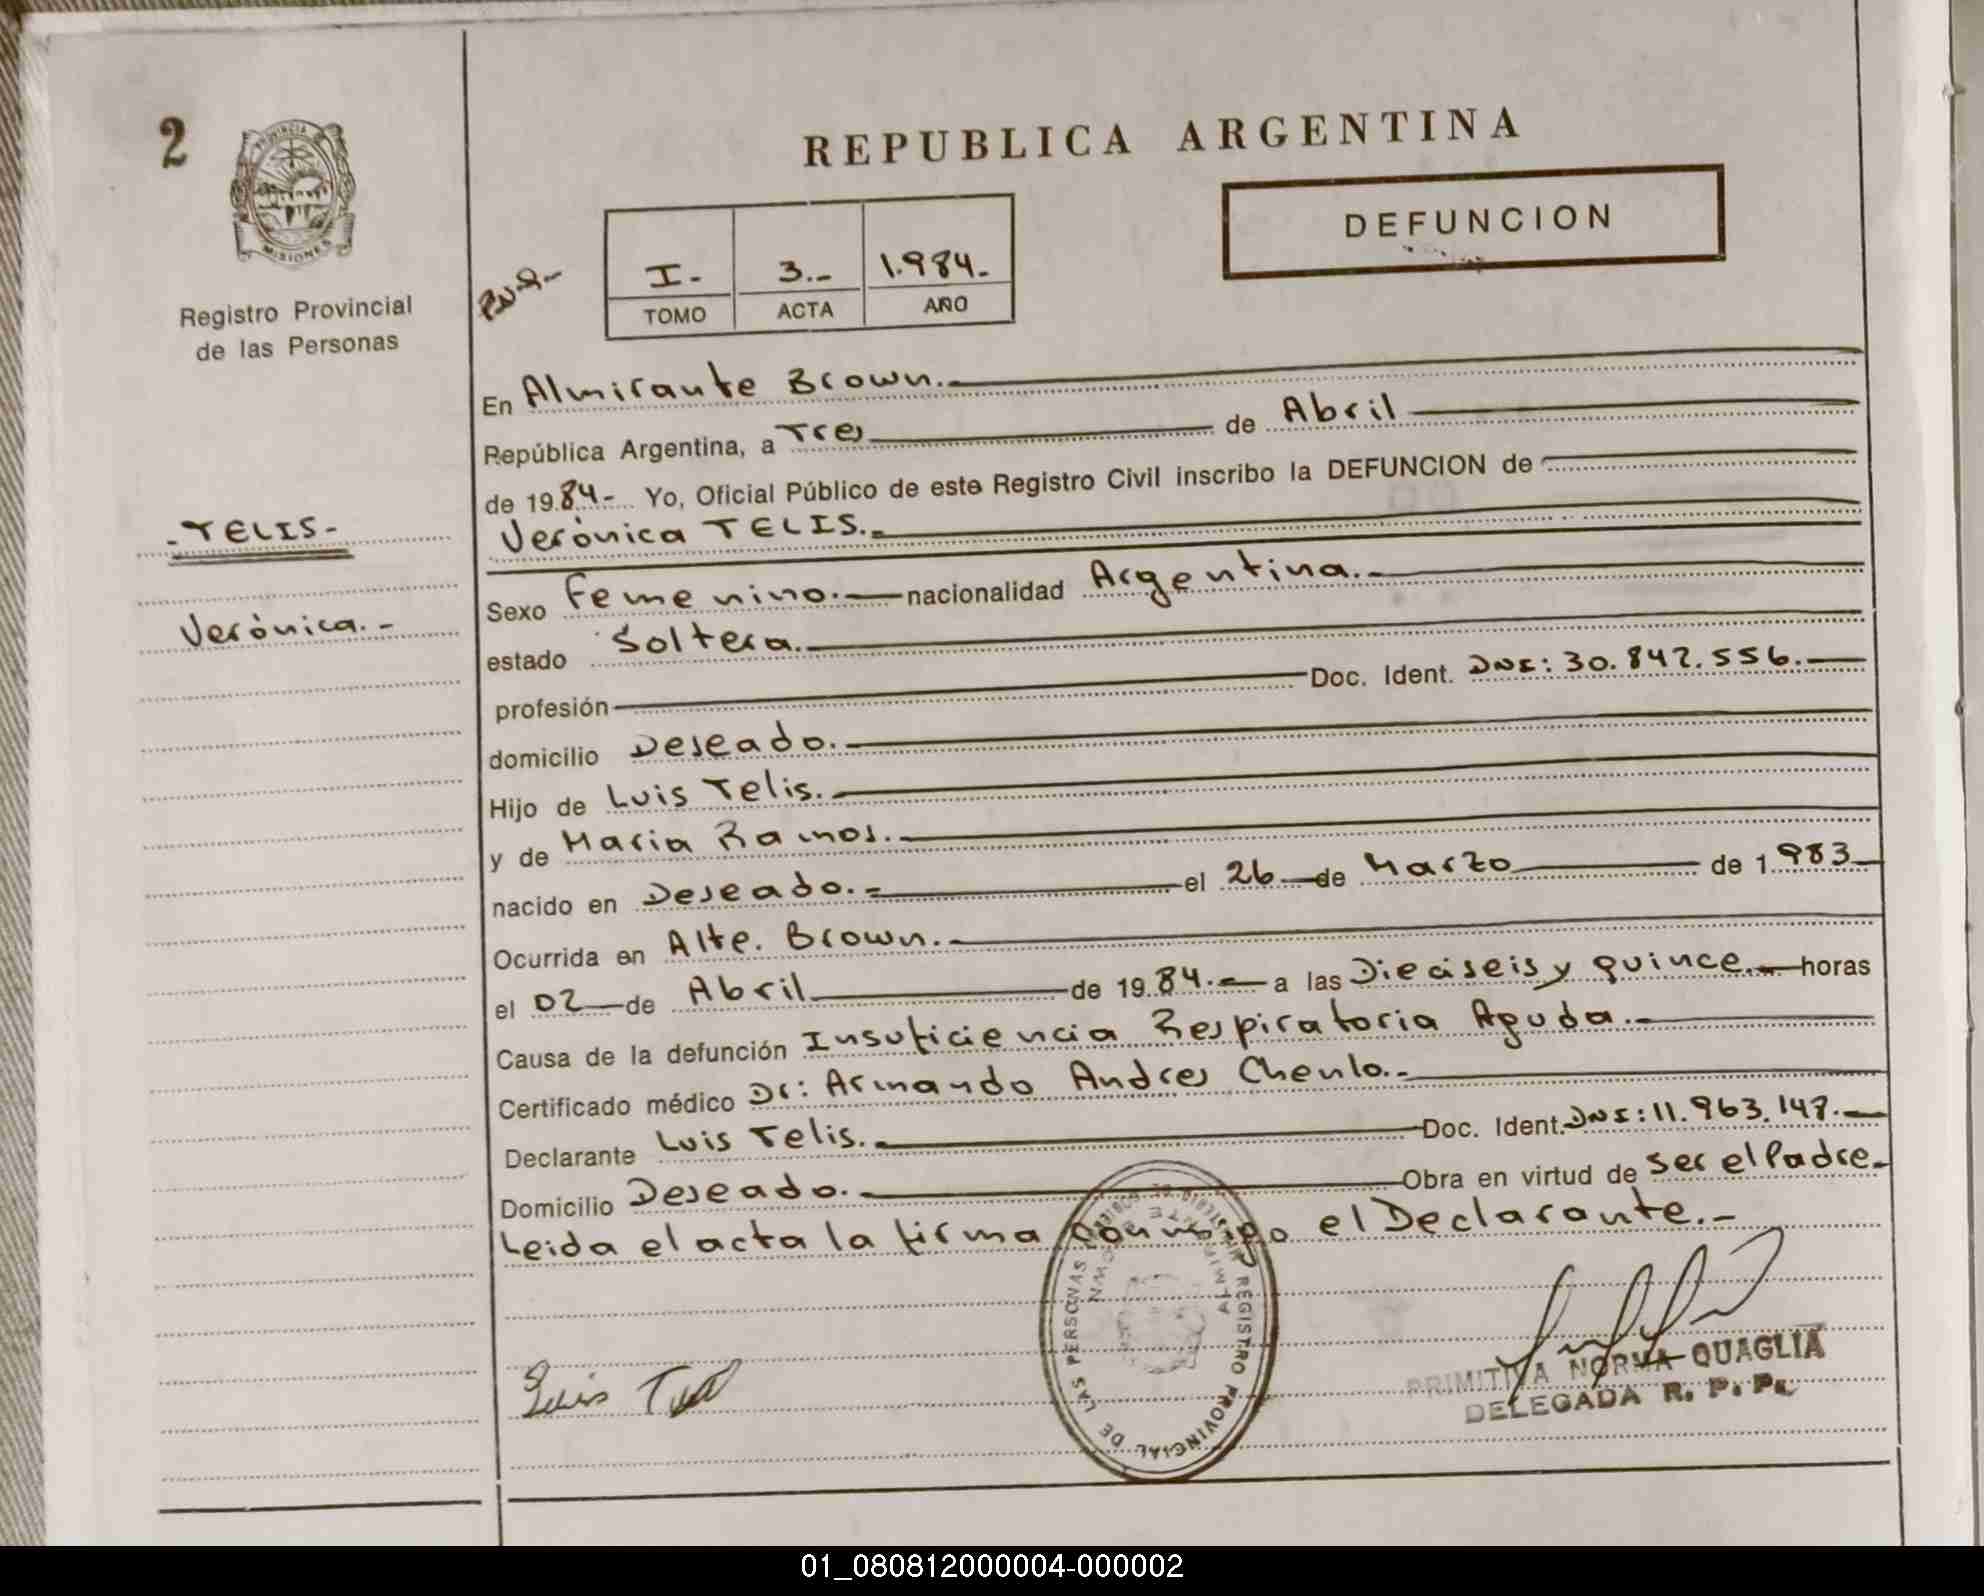 2
PROVINCIA
MISIONES
Registro Provincial
de las Personas
- TELIS -
Verónica. -
REPUBLICA ARGENTINA
DEFUNCION
I - 3. - 1.984 -
TOMO ACTA AÑO
En Almirante Brown. -
República Argentina, a Tres de Abril
de 1984 - Yo, Oficial Público de este Registro Civil inscribo la DEFUNCION de
Verónica TELIS. -
Sexo Femenino. - nacionalidad Argentina. -
estado Soltera. -
profesión Doc. Ident. DNI: 30.842.556. -
domicilio Deseado. -
Hijo de Luis Telis. -
y de Maria Ramos. -
nacido en Deseado. - el 26 de Marzo de 1.983
Ocurrida en Alte. Brown. -
el 02 de Abril de 1984. - a las Dieciseis y quince. - horas
Causa de la defunción Insuficiencia Respiratoria Aguda. -
Certificado médico Dr: Armando Andres Chenlo. -
Declarante Luis Telis. - Doc. Ident. DNI: 11.963.147. -
Domicilio Deseado. - Obra en virtud de ser el Padre. -
Leida el acta la firma conmigo el Declarante. -
REGISTRO PROVINCIAL DE LAS PERSONAS
Luis
PRIMITIVA NORMA QUAGLIA
DELEGADA R. P. P.
01_080812000004-000002